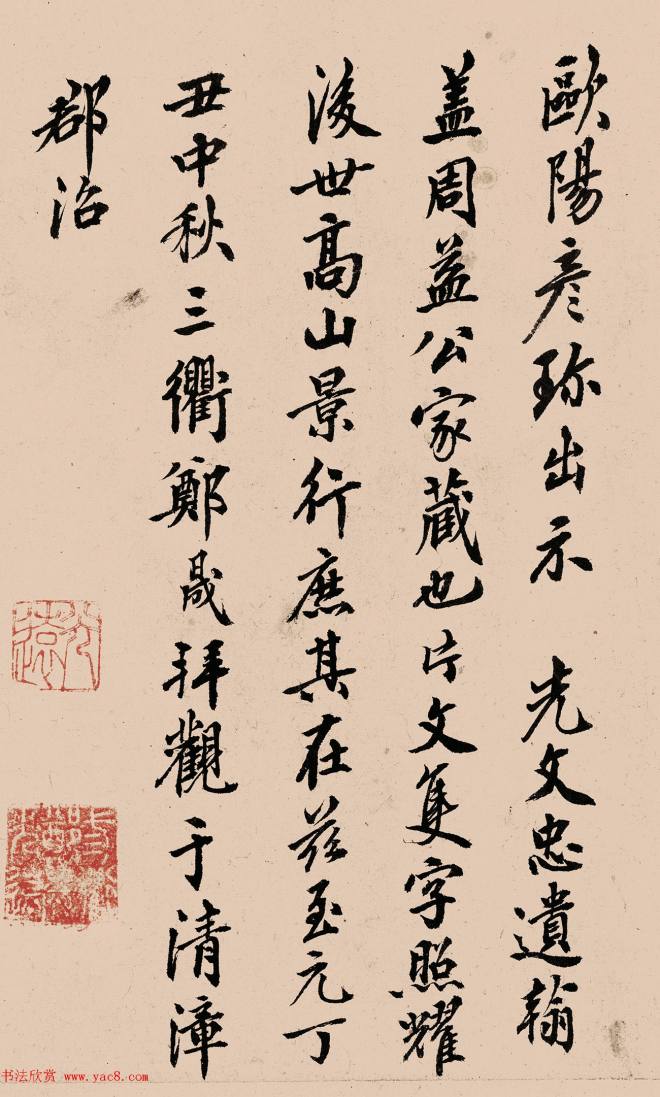 歐陽彦珎出示 先文忠遺翰
盖周益公家藏也片文隻字照耀
後世高山景行庶其在茲至元丁
丑中秋三衢鄭晟拜觀于清漳
郡治
书法欣赏 www.yac8.com